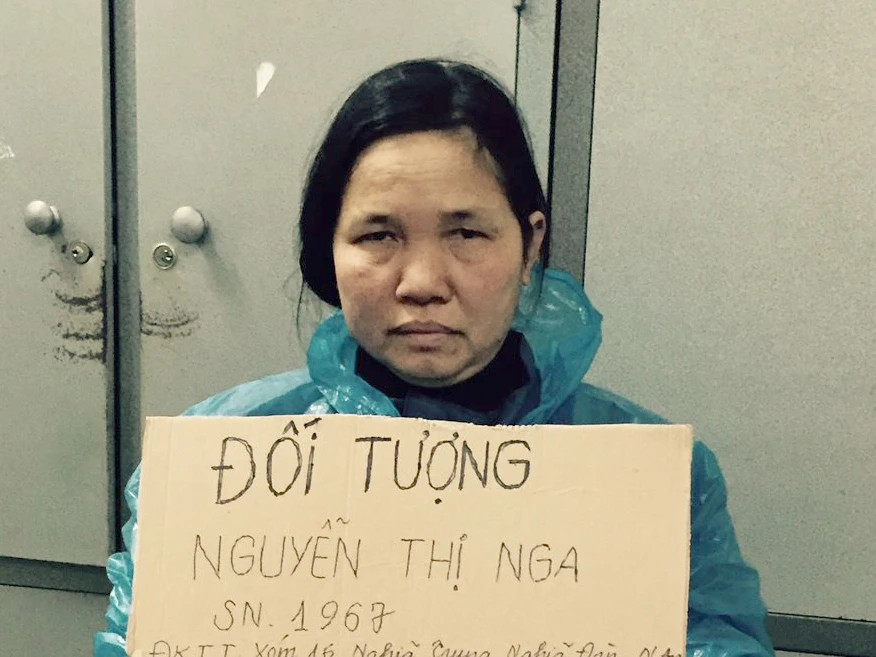 ĐỐI TƯỢNG
NGUYỄN THỊ NGA
SN. 1967
ĐKTT. Xóm 15 Nghĩa Trung Nghĩa Đàn